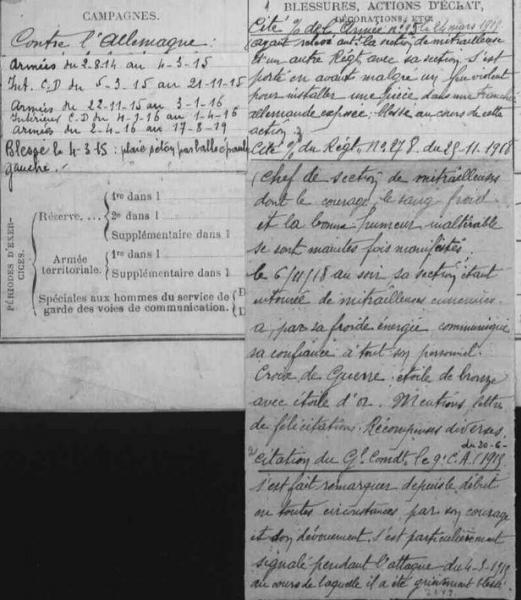 CAMPAGNES.
Contre l'Allemagne:
Armées du 2-8-14 au 4-3-15
Int. C.D du 5-3-15 au 21-11-15
Armées du 22-11-15 au 3-1-16
Intérieur C.D du 4-1-16 au 1-4-16
Armées du 2-4-16 au 17-8-19
Blessé le 4-3-15: plaie séton par balle épaule
gauche.
PÉRIODES D'EXER-
CICES.
Réserve....
1re dans l
2e dans l
Supplémentaire dans l
Armée
territoriale.
1re dans l
Supplémentaire dans l
Spéciales aux hommes du service de
garde des voies de communication.
BLESSURES, ACTIONS D'ÉCLAT,
DÉCORATIONS, ETC.
Cité % de l'Armée n° du 24 mars 1915
ayant relevé avec la section de mitrailleuse
d'un autre Régt, avec sa section, s'est
porté en avant malgré un feu violent
pour installer une pièce dans une tranchée
allemande exposée. blessé au cours de cette
action
Cité % du Régt. No 278 du 29-11-1918
(Chef de section de mitrailleuses
dont le courage, le sang froid
et la bonne humeur inaltérable
se sont maintes fois manifestés,
le 6/11/18 au soir sa section étant
de mitrailleuses ennemies
a par sa froide énergie communiqué
sa confiance à tout son personnel.
Croix de Guerre étoile de bronze
avec étoile d'or. Mentions, lettres
de félicitations. Récompenses diverses
du 20-6-
Citation du Gl Comdt. le 9e C.A. (1915
s'est fait remarquer depuis le début
en toutes circonstances par son courage
et son dévouement. s'est particulièrement
signalé pendant l'attaque du 4-3-1915
au cours de laquelle il a été grièvement blessé.